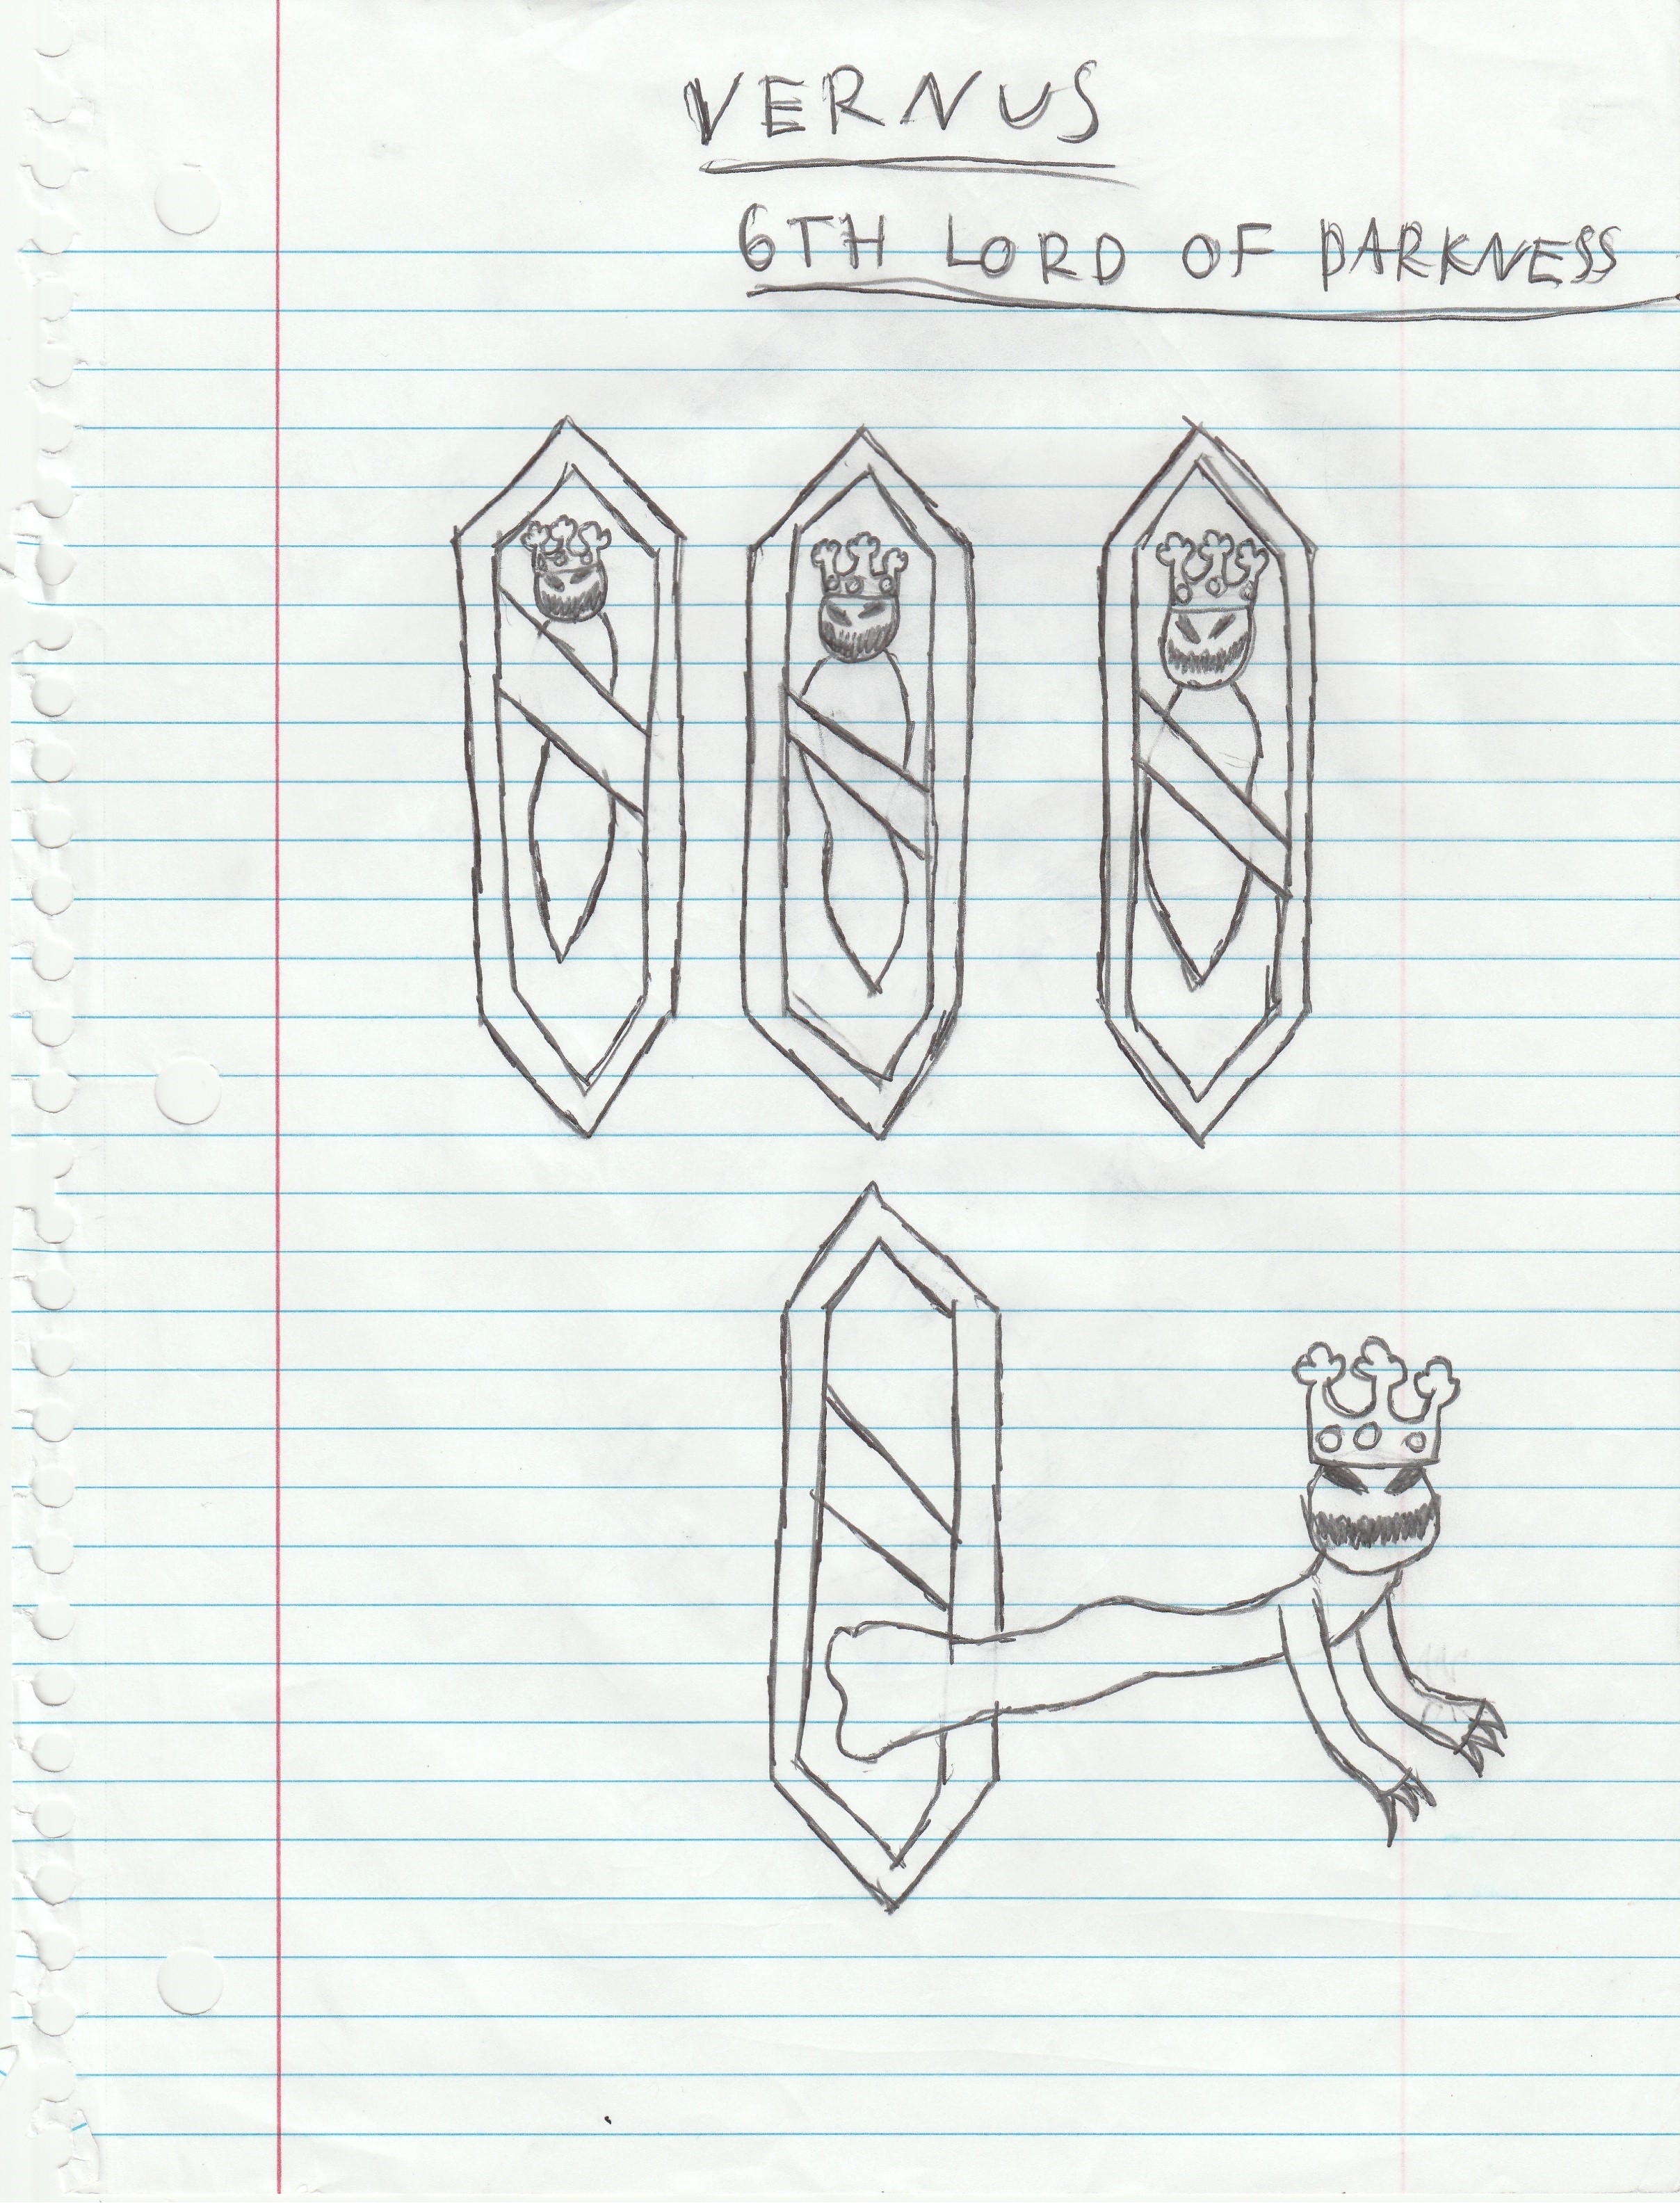 VERNUS
6TH LORD OF DARKNESS